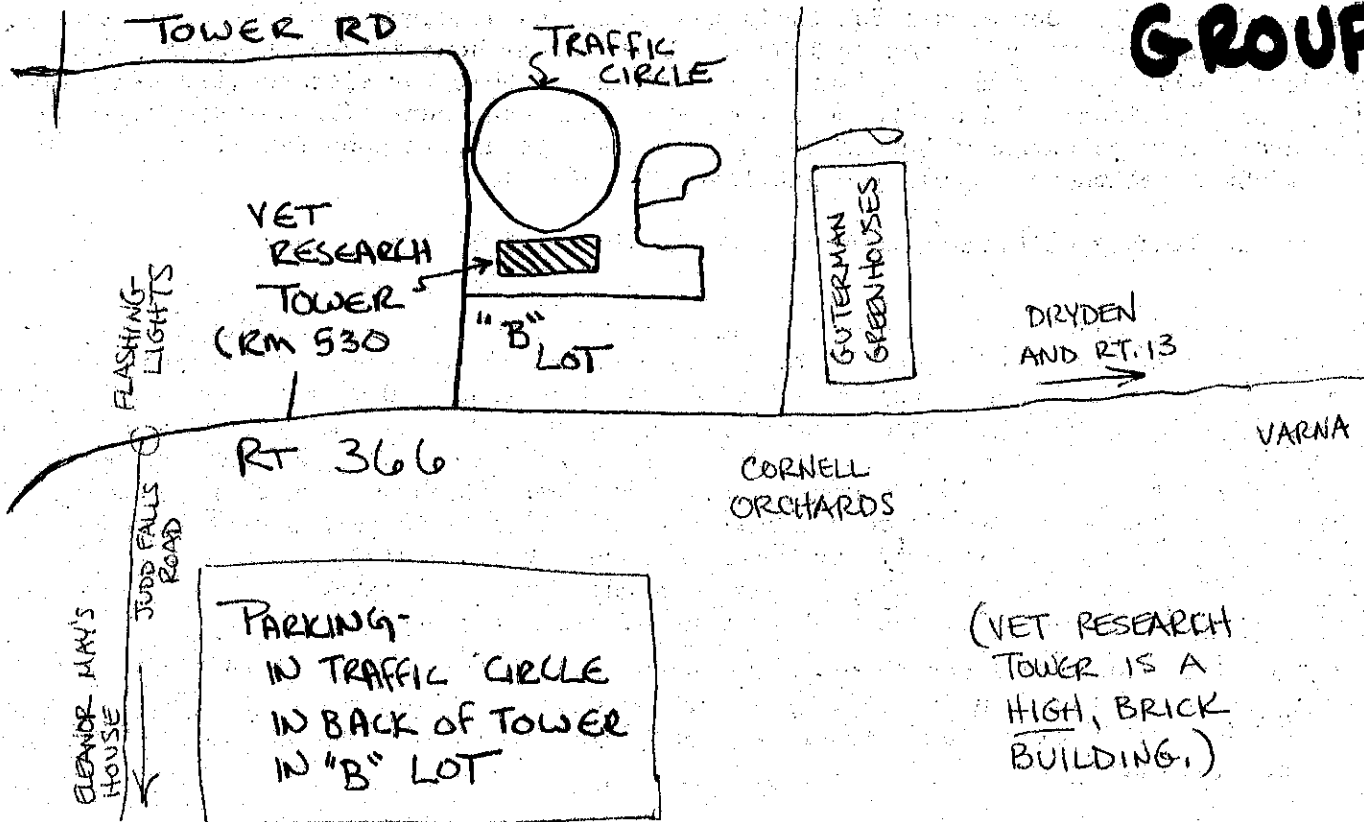 GROUP
TOWER RD
TRAFFIC
CIRCLE
VET
RESEARCH
TOWER
(RM 530
"B"
LOT
GUTERMAN
GREENHOUSES
FLASHING
LIGHTS
DRYDEN
AND RT. 13
VARNA
RT 366
CORNELL
ORCHARDS
JUDD FALLS
ROAD
ELEANOR MAY'S
HOUSE
PARKING-
IN TRAFFIC CIRCLE
IN BACK OF TOWER
IN "B" LOT
(VET RESEARCH
TOWER IS A
HIGH, BRICK
BUILDING.)